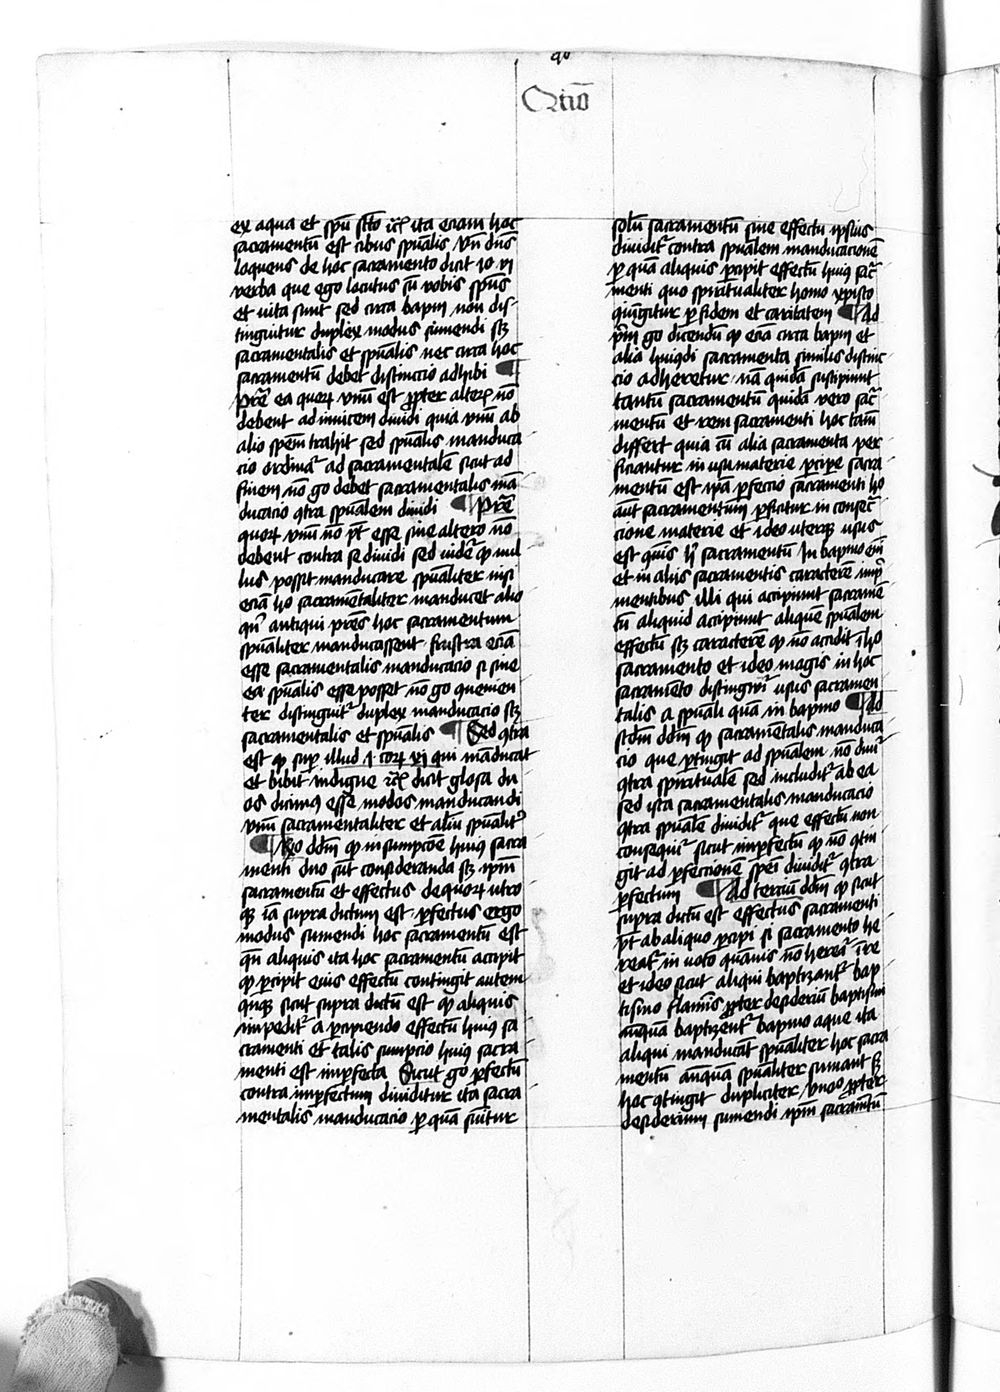 qo
Qtio
ex aqua et spū sctō rc̄ ita eciam hoc
sacramentū est cibus spūalis Vn̄ dn̄s
loquens de hoc sacramento dicit io vi
verba que ego locutus sū vobis spūs
et uita sunt sed circa bapm̄ non dis
tinguitur duplex modus sumendi sꝫ
sacramentalis et spūalis nec circa hoc
sacramentū debet distinctio adhibi ¶
pret̄ ea quorꝝ vnū est ꝓpter alterꝝ nō
debent adinuicem diuidi quia vnū ab
alio spēm trahit sed spūalis manduca
cio ordinat̄ ad sacramentalē sicut ad
finem nō go debet sacramentalis mā
ducacio ꝯtra spūalem diuidi ¶ Pret̄
quorꝝ vnū nō pt̄ esse sine altero nō
debent contra se diuidi sed videt̄ ꝙ nul
lus possit manducare spūaliter nisi
eciā hō sacramētaliter manducet alio
qn̄ antiqui prēs hoc sacramentum
spūaliter manducassent frustra eciā
esset sacramentalis manducacio si sine
ea spūalis esse posset nō go quenien
ter distinguit̄ duplex manducacio sꝫ
sacramentalis et spūalis ¶ Sed ꝯtra
est ꝙ suꝑ illud i cor xi qui māducat
et bibit indigne rc̄ dicit glosa du
os dicimꝰ esse modos manducandi
vnū sacramentaliter et aliū spūalit̄
¶ Rō ddm̄ ꝙ in sumpcōe huiꝰ sacra
menti duo sūt consideranda sꝫ ipm̄
sacramentū et effectus de quorꝝ utro
qꝫ iā supra dictum est ꝑfectus ergo
modus sumendi hoc sacramentū est
qn̄ aliquis ita hoc sacramentū accipit
ꝙ ꝑcipit eius effectū contingit autem
qnqꝫ sicut supra dictū est ꝙ aliquis
impedit̄ a ꝑcipiendo effectū huiꝰ sa
cramenti et talis sumpcio huiꝰ sacra
menti est imꝑfecta Sicut go ꝑfectū
contra imꝑfectum diuiditur ita sacra
mentalis manducacio ꝑ quā sūitur
solū sacramentū sine effectu ipsius
diuidit̄ contra spūalem manducacionē
ꝑ quā aliquis ꝑcipit effectū huiꝰ sac̄
menti quo spiritualiter homo xp̄isto
ꝯiūgitur ꝑ fidem et caritatem ¶ Ad
pm̄ go dicendū ꝙ eciā circa bapm̄ et
alia huiꝰdi sacramenta similis distinc
cio adheretur nā quidā suscipiunt
tantū sacramentū quidā vero sac̄
mentū et rem sacramenti hoc tam̄
differt quia cū alia sacramenta per
ficiantur in usu materie ꝑcipere sacra
mentū est ipā ꝑfectio sacramenti hō
aut̄ sacramentum ꝑficitur in consec̄
cione materie et ideo uterqꝫ usus
est qn̄is hꝰ sacramentū In bapmo em̄
et in aliis sacramentis caracterē imp̄
mentibus illi qui accipiunt sacramē
tū aliquid accipiunt aliquē spūalem
effectū sꝫ caracterē ꝙ nō accidit ī hō
sacramento et ideo magis in hoc
sacramēto distingwit̄ usus sacramen
talis a spūali quā in bapmo ¶ Ad
scdm̄ ddm̄ ꝙ sacramētalis manduca
cio que ꝑtingit ad spūalem nō diui
ꝯtra spiritualē sed includit̄ ab ea
sed ista sacramentalis manducacio
ꝯtra spūalē diuidit̄ que effectū non
consequit̄ sicut imꝑfectū ꝙ nō ꝯtin
git ad ꝑfectionē spēi diuidit̄ ꝯtra
ꝑfectum ¶ Ad terciū ddm̄ ꝙ sicut
supra dictū est effectus sacramenti
pt̄ ab aliquo ꝑcipi si sacramento he
reat̄ in voto quāuis nō hereat̄ ī re
et ideo sicut aliqui baptizant̄ bap
tismo flaminis ꝓpter desideriū baptismi
anqua baptizent̄ bapmo aque ita
aliqui manducāt spūaliter hoc sacra
mentū anqua spūaliter sumant sꝫ
hoc ꝯtingit dupliciter vnoo ꝓpter
desiderium sumendi ipm̄ sacramtū